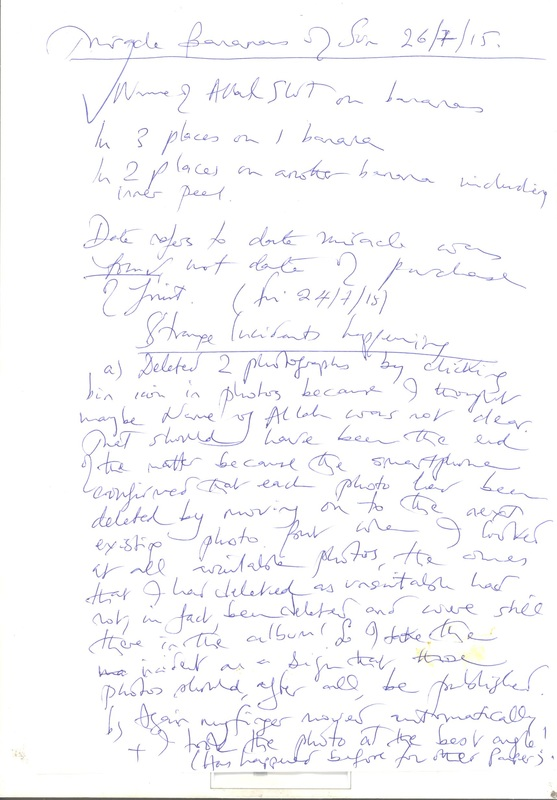 Miracle Bananas of Sun 26/7/15.
Name of Allah SWT on bananas
In 3 places on 1 banana
In 2 places on another banana including
inner peel.
Date refers to date miracle was
found not date of purchase
of fruit. (Fri 24/7/15)
Strange Incidents happening
a) Deleted 2 photographs by clicking
bin icon in photos because I thought
maybe Name of Allah was not clear.
That should have been the end
of the matter because the smartphone
confirmed that each photo had been
deleted by moving on to the next
existing photo but when I looked
at all available photos, the ones
that I had deleted as unsuitable had
not, in fact, been deleted and were still
there in the album! So I take the
incident as a sign that, those
photos should, after all, be published.
b) Again my finger moved automatically
+ I took the photo at the best angle!
(Has happened before for other papers).